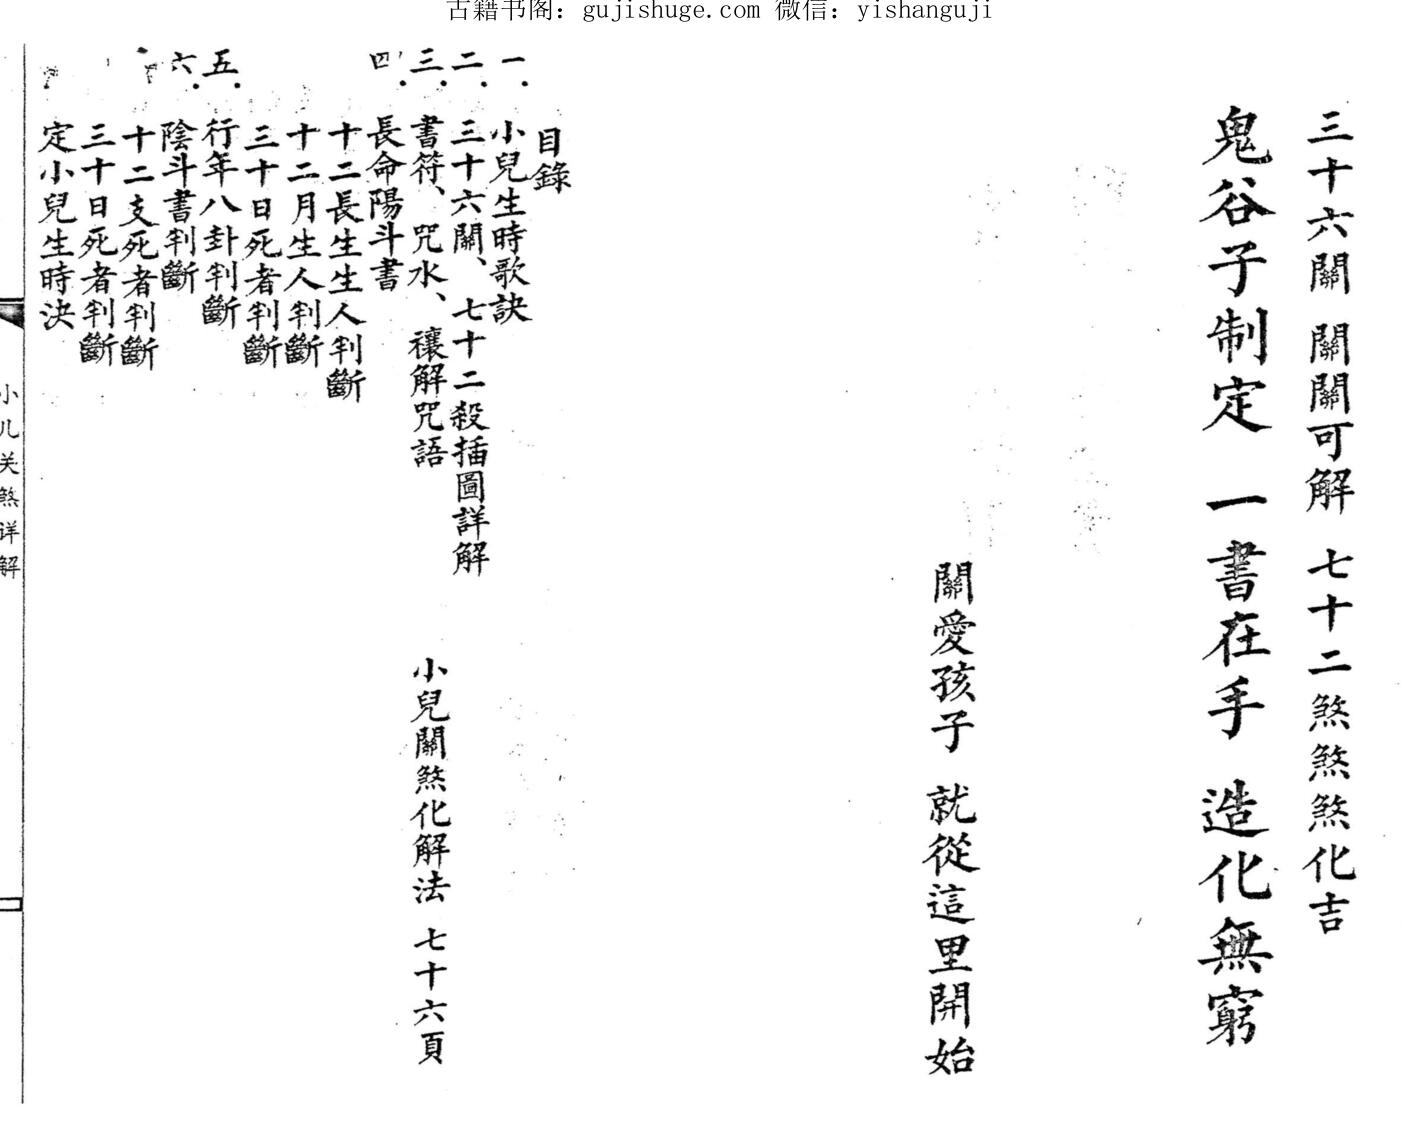 古籍书阁：gujishuge.com 微信：yishanguji
三十六關 關關可解 七十二煞煞煞化吉
鬼谷子制定 一書在手 造化無窮
關愛孩子 就從這里開始
目錄
一. 小兒生時歌訣
二. 三十六關、七十二殺插圖詳解
三. 書符、咒水、禳解咒語 小兒關煞化解法 七十六頁
四. 長命陽斗書
十二長生生人判斷
十二月生人判斷
三十日死者判斷
五. 行年八卦判斷
六. 陰斗書判斷
十二支死者判斷
三十日死者判斷
定小兒生時決
小儿关煞详解